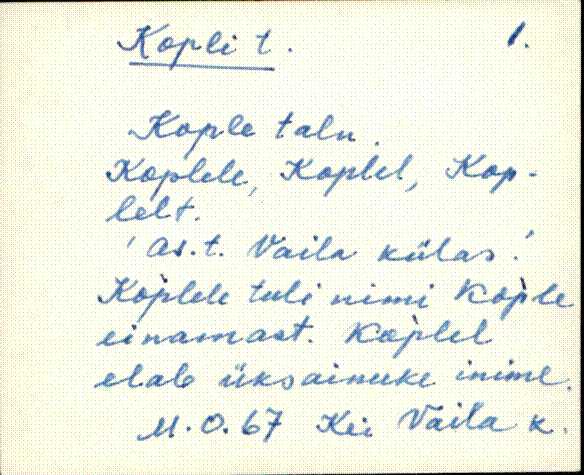 Kopli t. 1.
Kople talu.
Koplele, Koplel, Kop-
lelt.
'As. t. Vaila külas.'
Kop̀lele tuli nimi Kop̀le
einamast. Kop̀lel
elab üksainuke inime.
M. O. 67 Kei Vaila k.